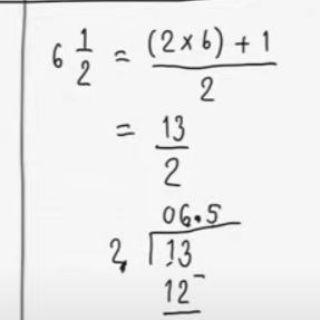 6 1/2 = (2×6) + 1 / 2
= 13/2
06.5
2 13
12 -